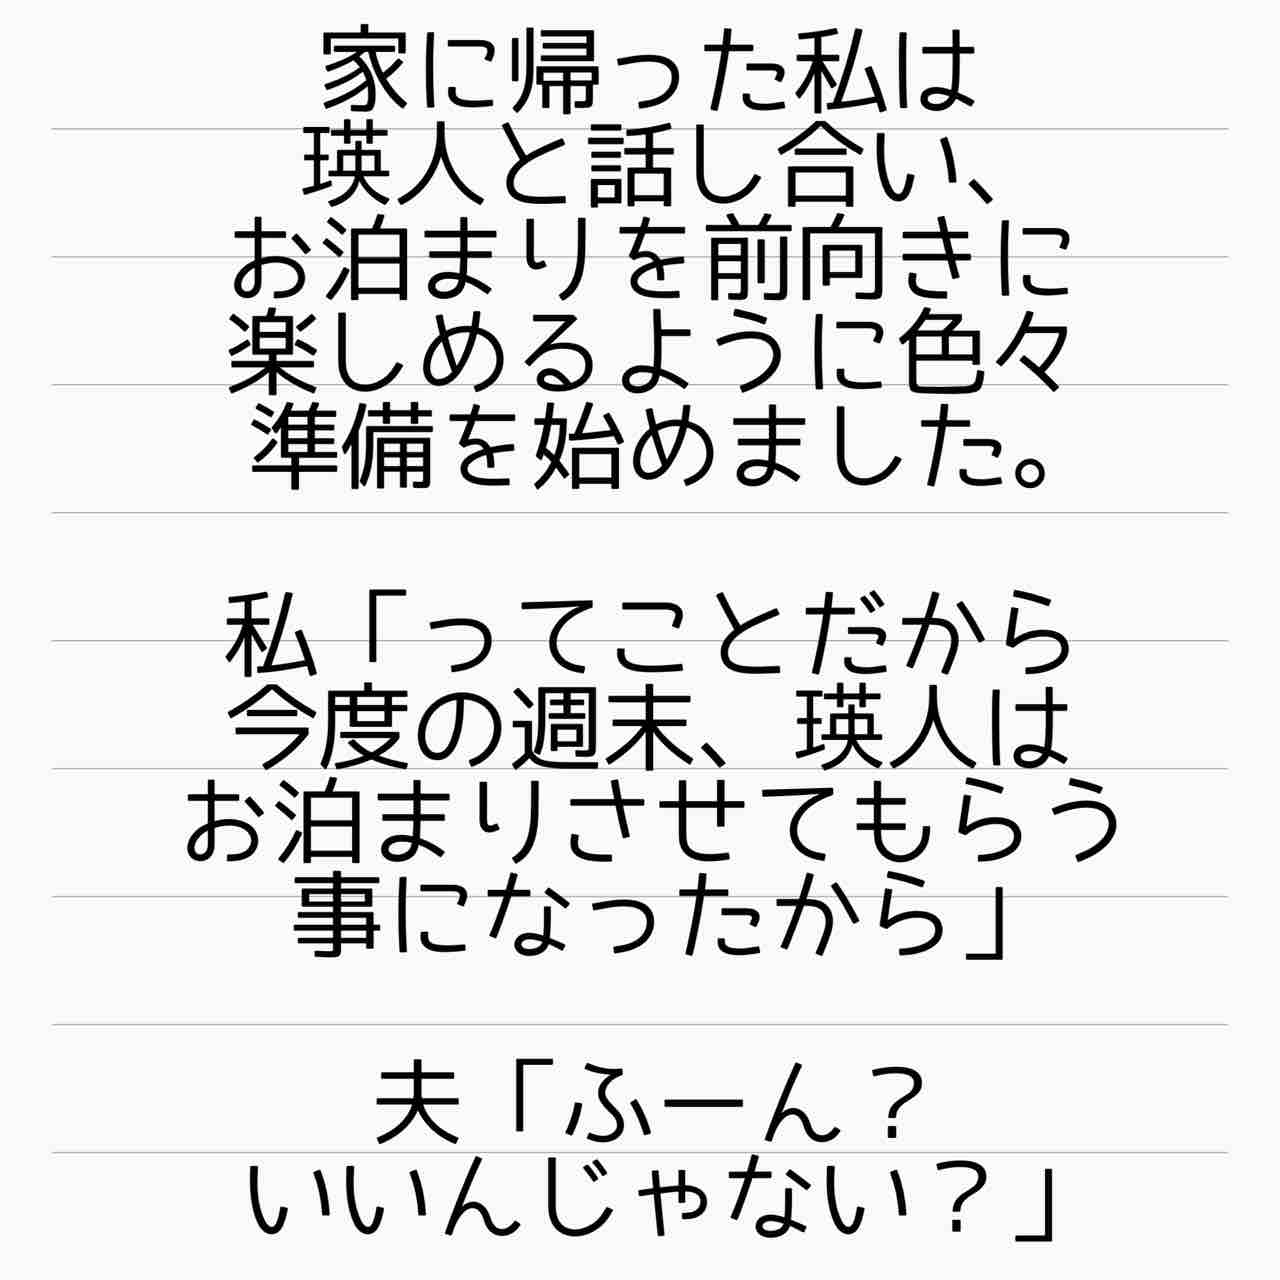 家に帰った私は
瑛人と話し合い、
お泊まりを前向きに
楽しめるように色々
準備を始めました。
私「ってことだから
今度の週末、瑛人は
お泊まりさせてもらう
事になったから」
夫「ふーん？
いいんじゃない？」